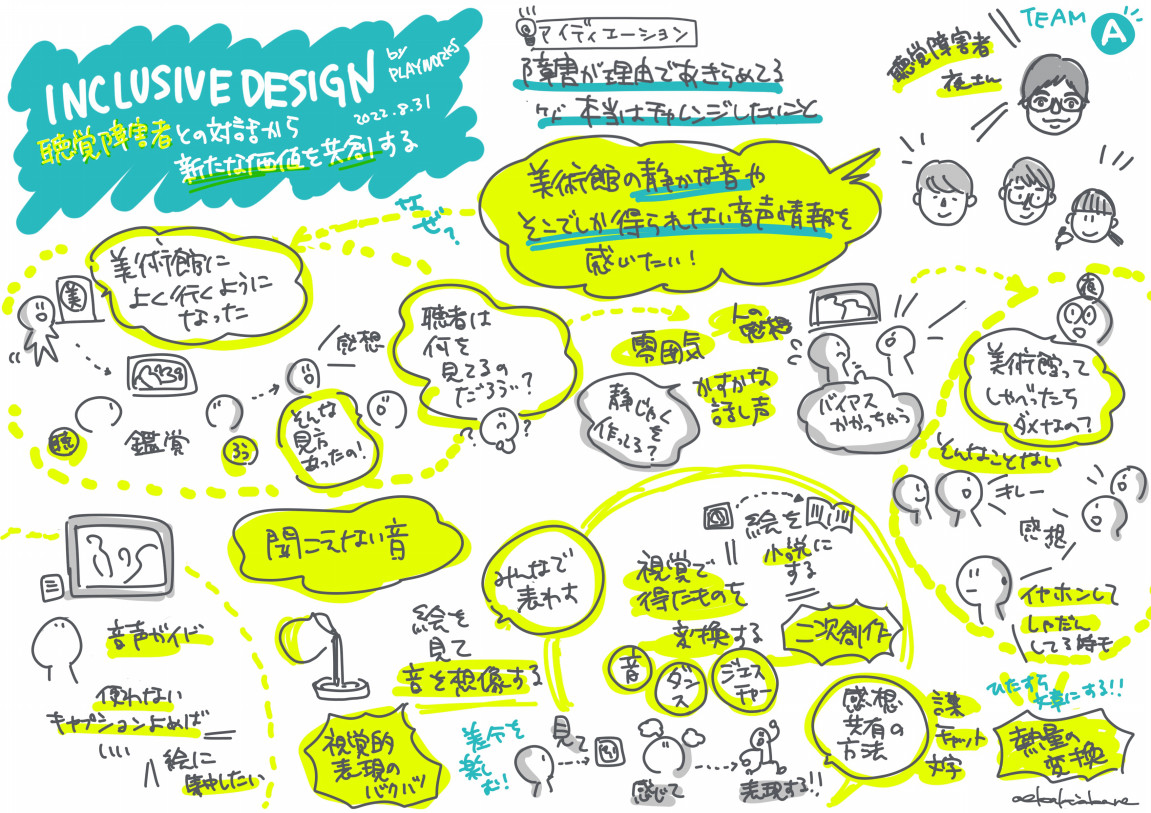 INCLUSIVE DESIGN
by
PLAYWORKS
2022.8.31
聴覚障害者との対話から
新たな価値を共創する
アイディエーション
障害が理由であきらめてる
けど 本当はチャレンジしたいこと
TEAM
A
聴覚障害者
美術館の静かな音や
そこでしか得られない音声情報を
感じたい!
なぜ?
美術館に
よく行くように
なった
美
感想
聴
鑑賞
ろう
そんな
見方
あったの!
聴者は
何を
見てるの
だろう?
?
?
雰囲気
人の
感想
かすかな
話し声
静じゃく
を
作ってる?
バイアス
かかっちゃう
美術館って
しゃべったら
ダメなの?
そんなことない
感想
イヤホンして
しゃだん
してる時も
ひたすら
文章にする!!
熱量の
変換
音声ガイド
使わない
キャプションよめば
絵に
集中したい
聞こえない音
絵を
見て
音を想像する
視覚的
表現の
バクバツ
みんなで
表わす
絵を
小説に
する
視覚で
得たものを
変換する
二次創作
音
ダンス
ジェス
チャー
差分を
楽しむ!
見て
感じて
表現する!!
感想
共有の
方法
チャット
文字